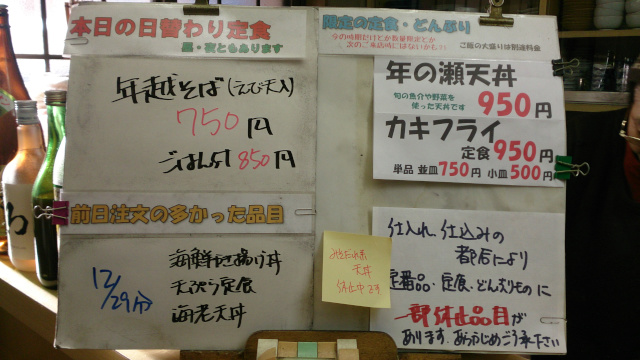 本日の日替わり定食
昼・夜ともあります
年越そば(えび天入)
750円
ごはん付850円
前日注文の多かった品目
12/29分
海鮮かき揚げ丼
天ぷら定食
海老天丼
限定の定食・どんぶり
今の時期だけとか数量限定とか
次のご来店時にはないかも?!
ご飯の大盛りは別途料金
年の瀬天丼
旬の魚介や野菜を
使った天丼です
950円
カキフライ
定食950円
単品 並皿750円 小皿500円
天丼
休止中です
仕入れ、仕込みの
都合により
定番品・定食・どんぶりものに
一部休止品目が
あります。あらかじめご了承下さい